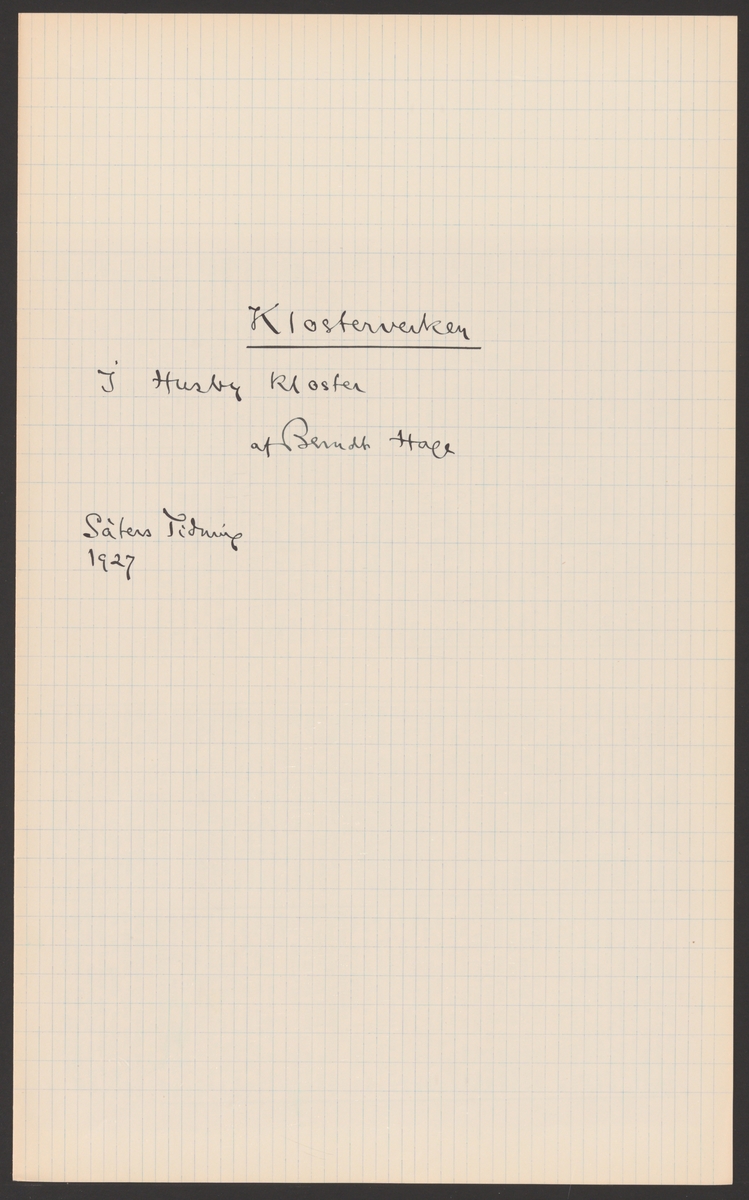 Klosterverken
I Husby Kloster
af Berndt Hage
Säters Tidning
1927